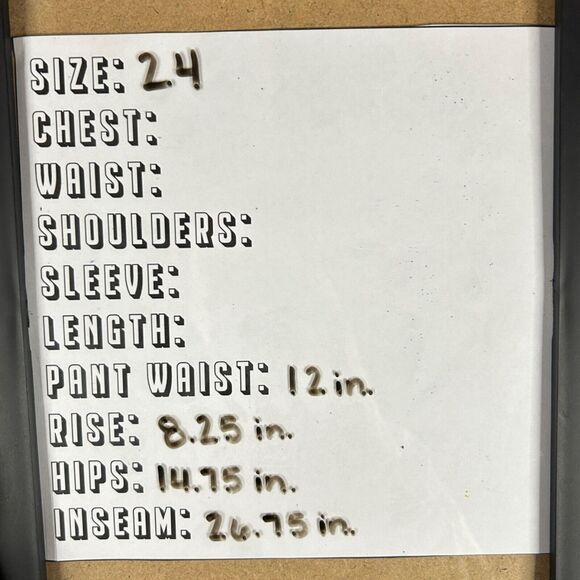 SIZE: 24
CHEST:
WAIST:
SHOULDERS:
SLEEVE:
LENGTH:
PANT WAIST: 12 in.
RISE: 8.25 in.
HIPS: 14.75 in.
INSEAM: 26.75 in.